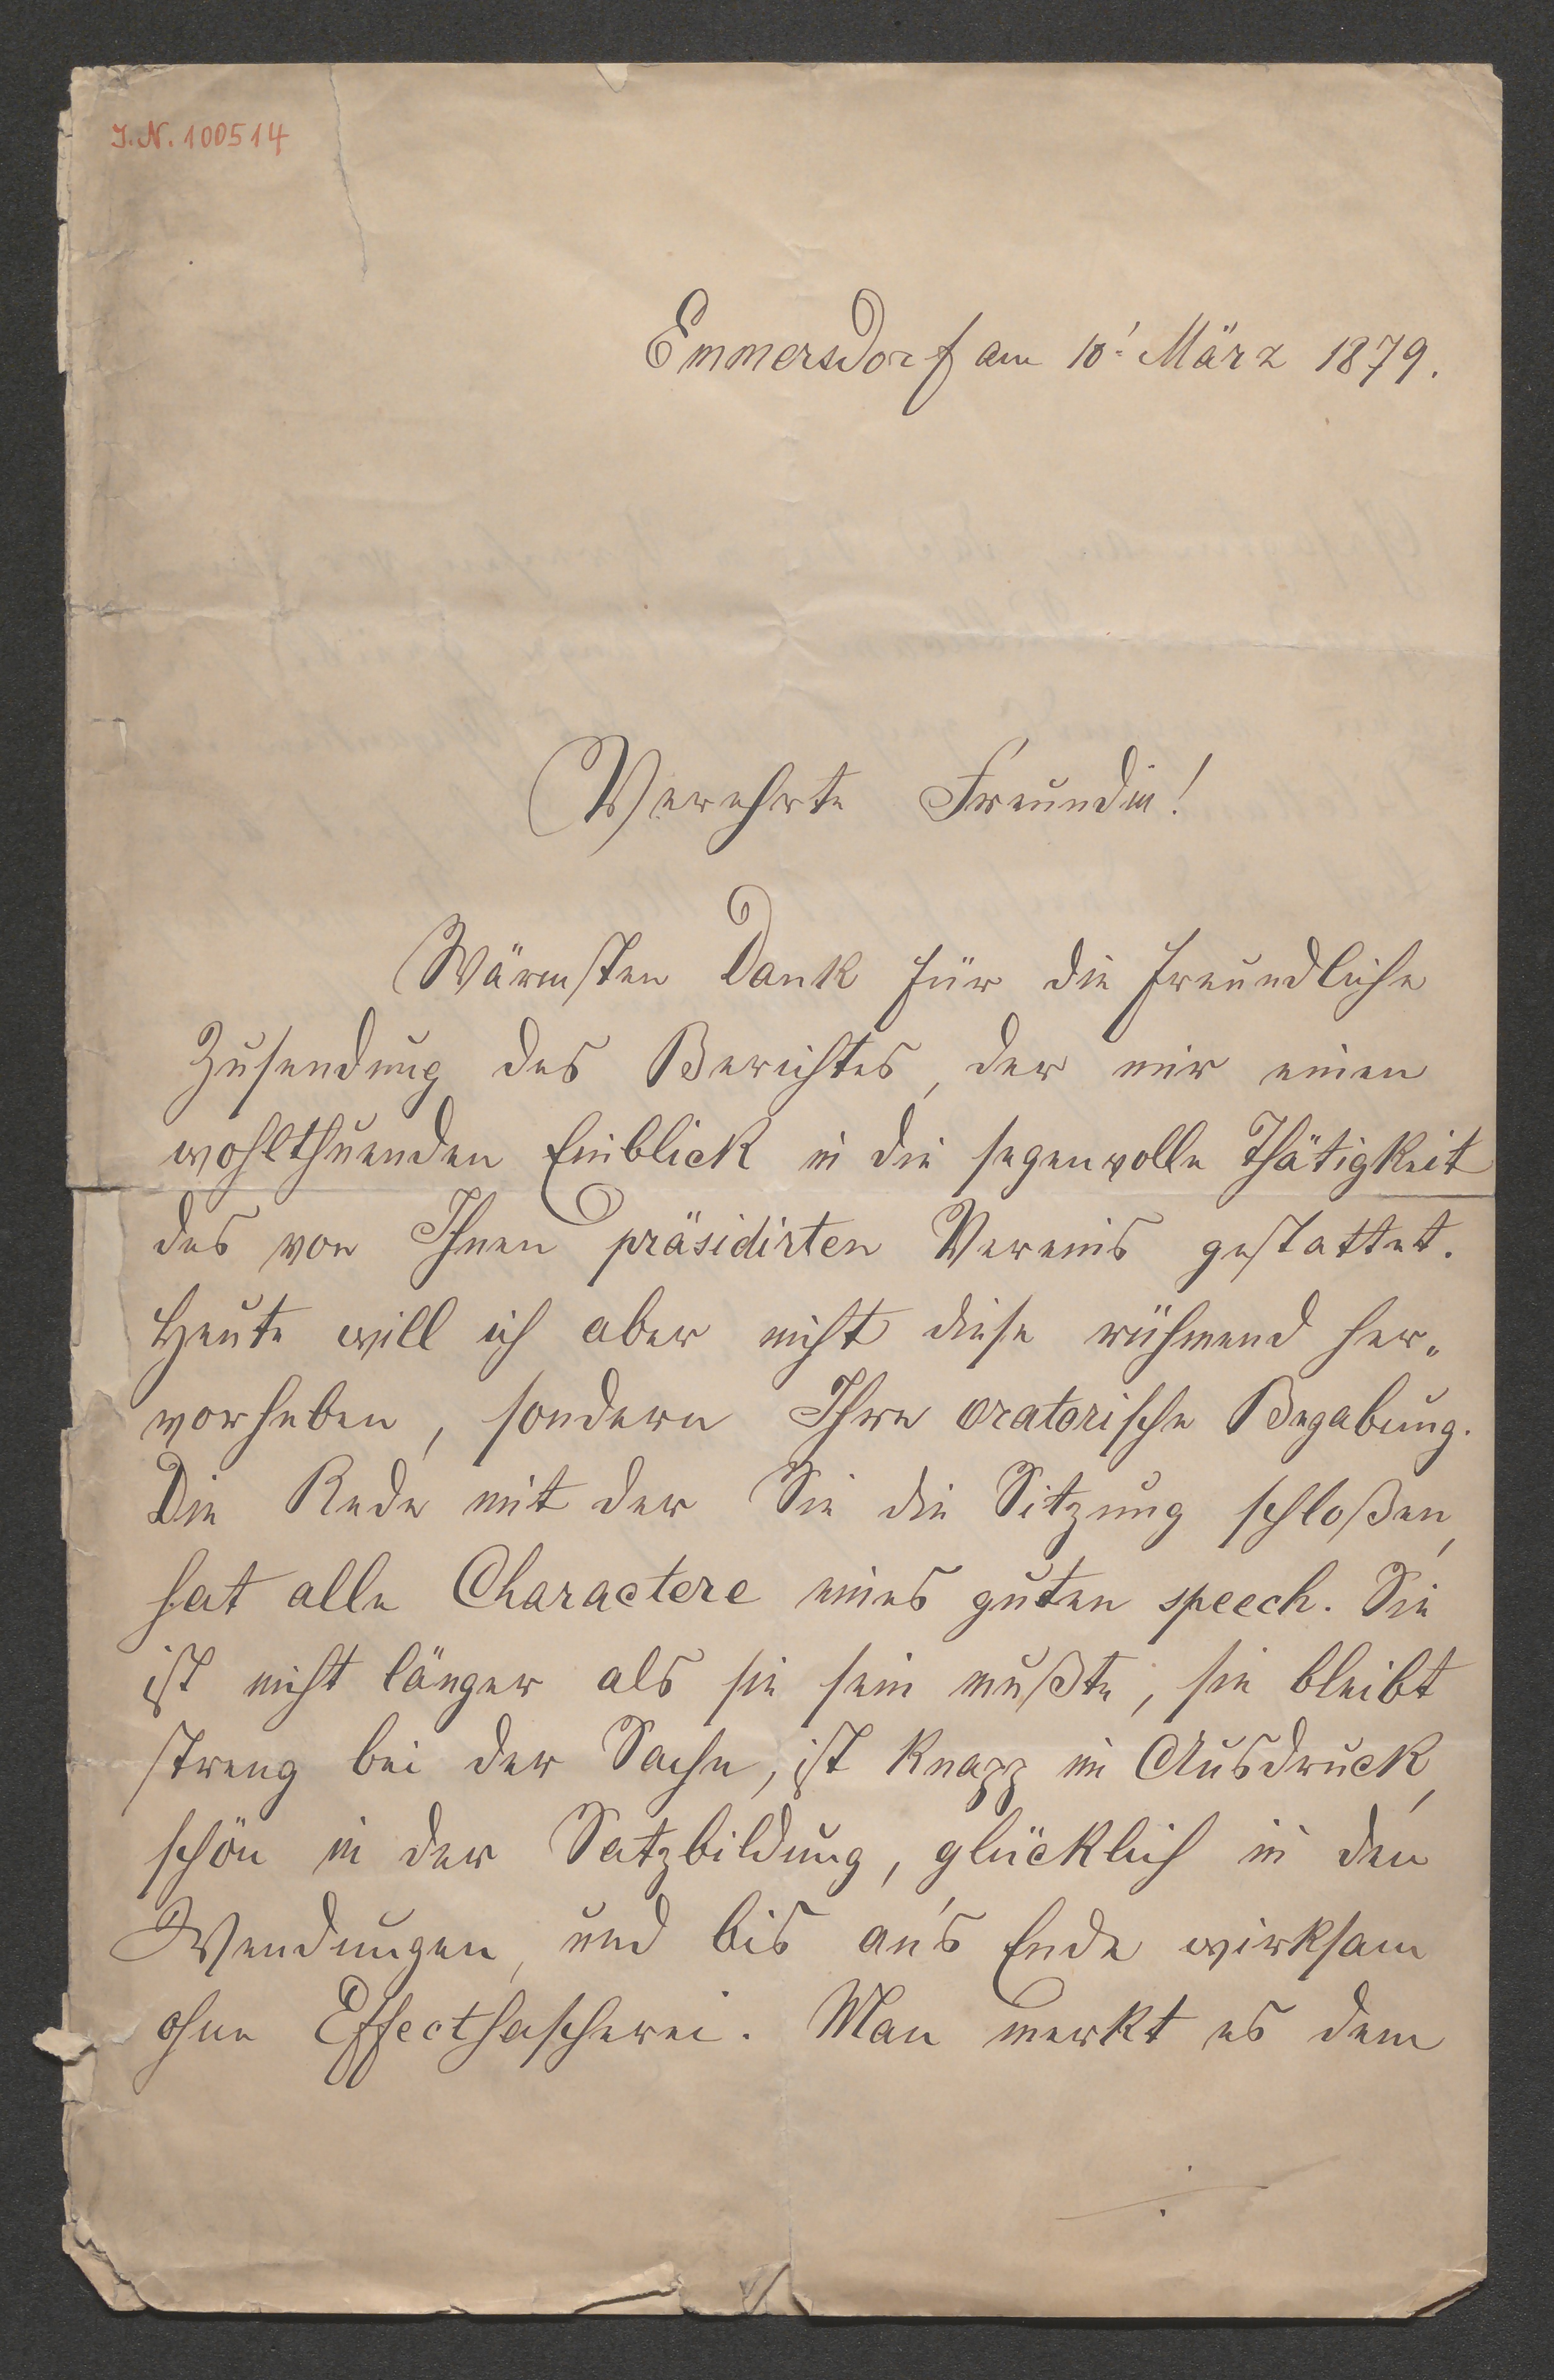 J.N. 100514
Emmersdorf am 10. März 1879.
Verehrte Freundin!
Wärmsten Dank für die freundliche
Zusendung des Berichtes, der mir einen
wohlthuenden Einblick in die segenvolle Thätigkeit
des von Ihnen präsidirten Vereins gestattet.
Heute will ich aber nicht diese rühmend her„
vorheben, sondern Ihre oratorische Begabung.
Die Rede mit der Sie die Sitzung schloßen,
hat alle Charactere eines guten speech. Sie
ist nicht länger als sie sein mußte, sie bleibt
streng bei der Sache, ist knapp im Ausdruck,
schön in der Satzbildung, glücklich in den
Wendungen, und bis an's Ende wirksam
ohne Effecthascherei. Man merkt es dem